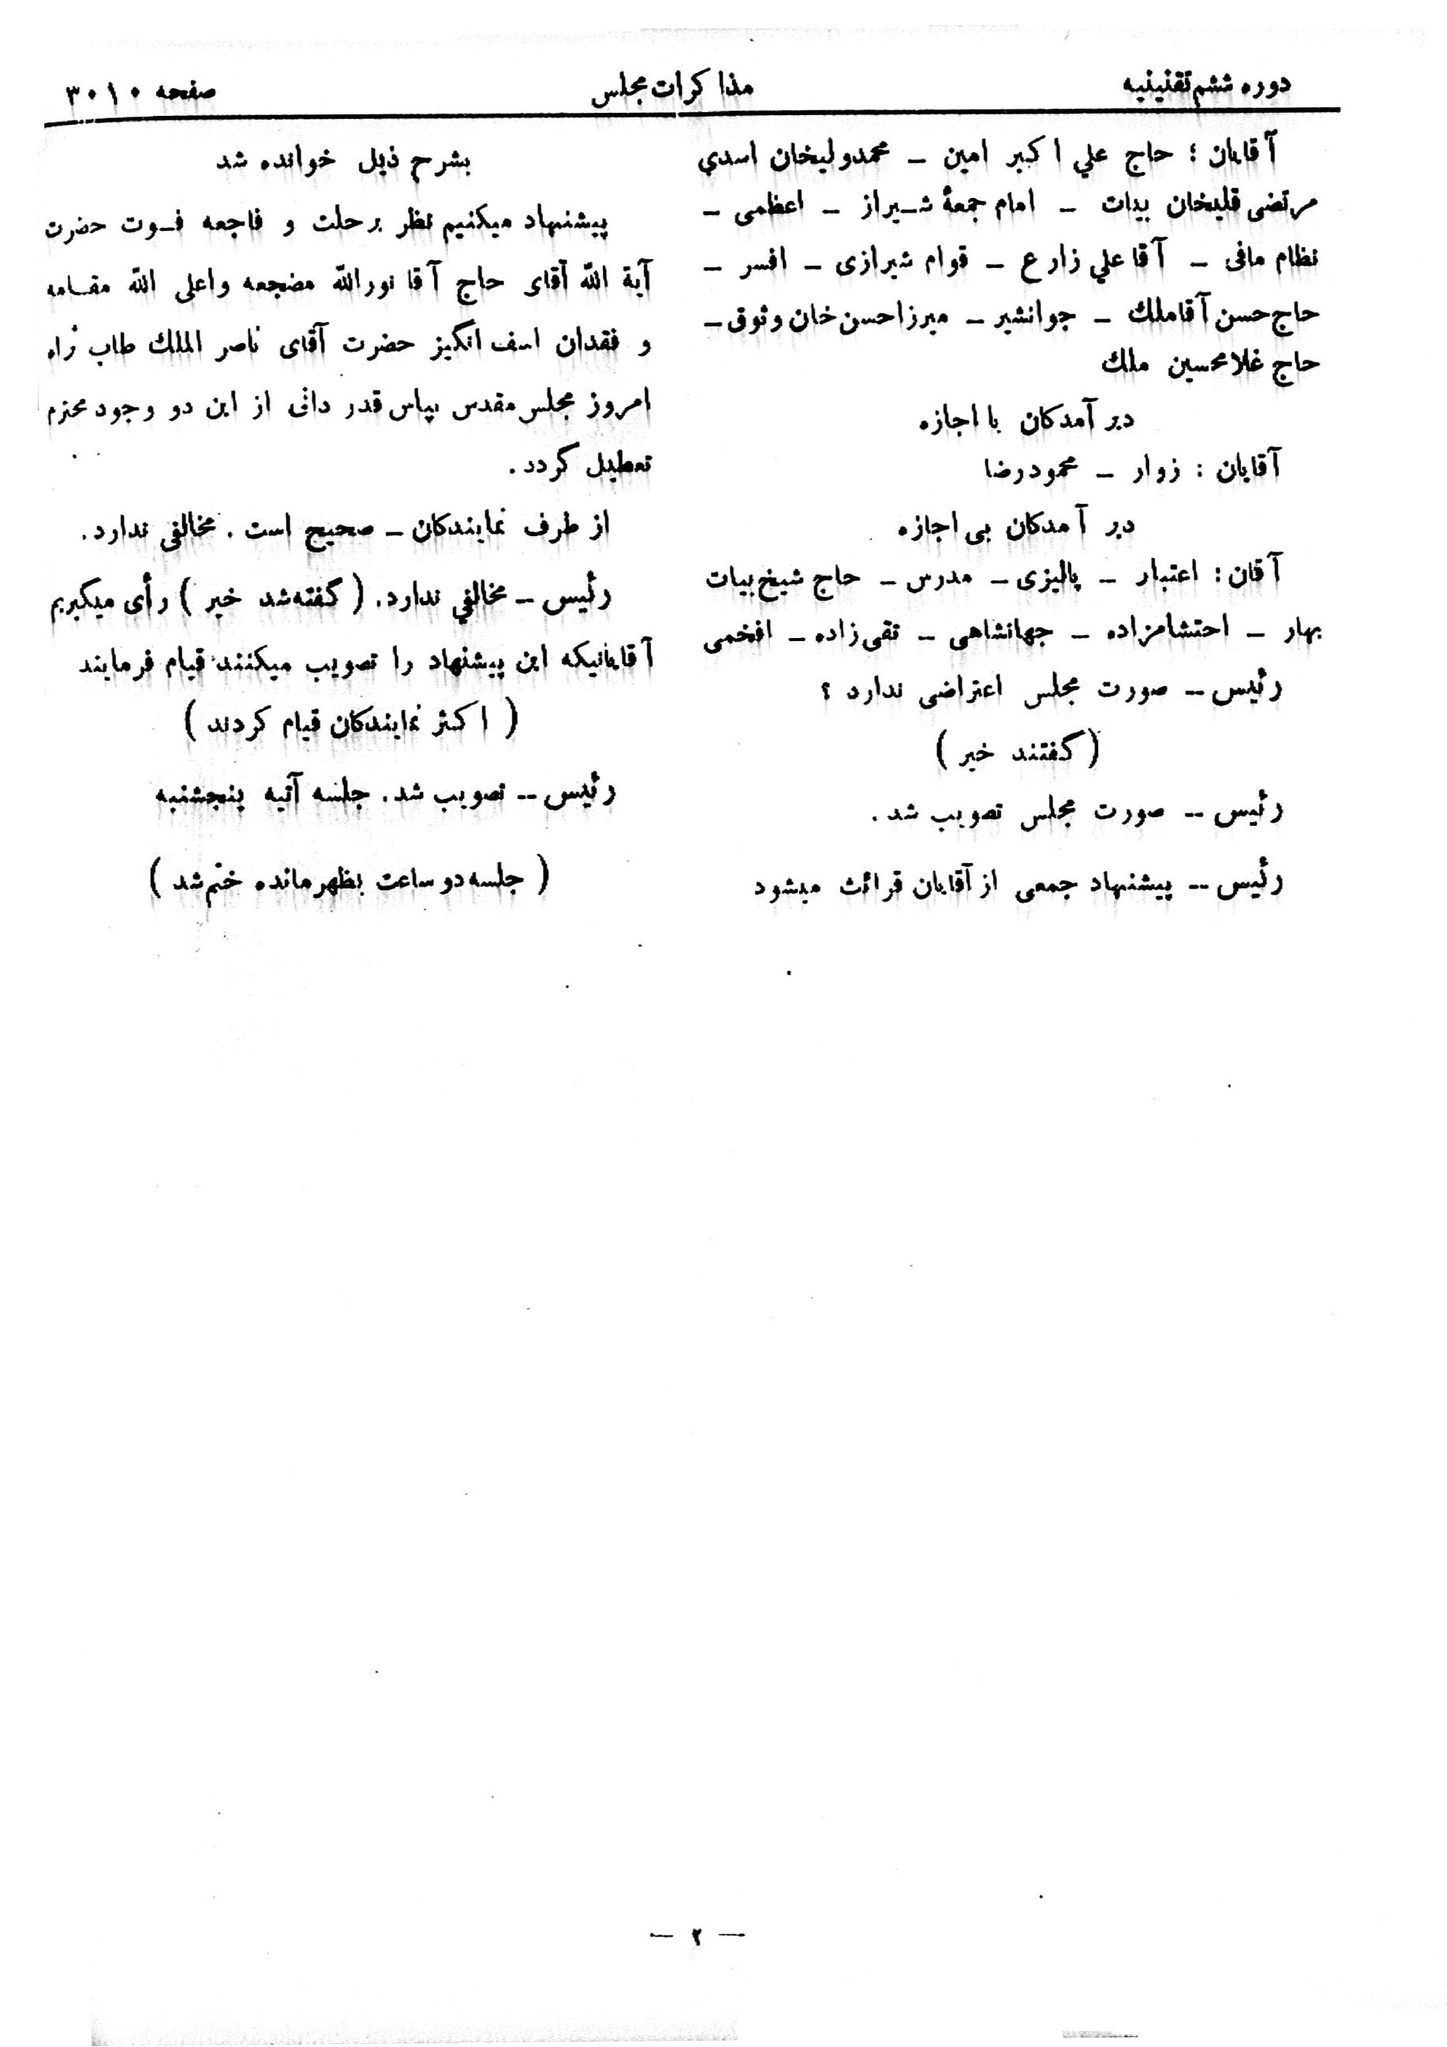 دوره ششم تقنینیه
مذاکرات مجلس
صفحه ۳۰۱۰
آقایان ؛ حاج علی اکبر امین ـ محمدولیخان اسدی
مرتضی قلیخان بیات ـ امام جمعهٔ شـیراز ـ اعظمی ـ
نظام مافی ـ آقا علی زارع ـ قوام شیرازی ـ افسر ـ
حاج حسن آقا ملك ـ جوانشیر ـ میرزا حسن خان وثوق ـ
حاج غلامحسین ملك
دیر آمدکان با اجازه
آقایان : زوار ـ محمودرضا
دیر آمدکان بی اجازه
آقان : اعتبار ـ پالیزی ـ مدرس ـ حاج شیخ بیات
بهار ـ احتشامزاده ـ جهانشاهی ـ تقی زاده ـ افخمی
رئیس ــ صورت مجلس اعتراضی ندارد ؟
( گفتند خیر )
رئیس ــ صورت مجلس تصویب شد .
رئیس ــ پیشنهاد جمعی از آقایان قرائت میشود
بشرح ذیل خوانده شد
پیشنهاد میکنیم نظر برحلت و فاجعه فـوت حضرت
آیة الله آقای حاج آقا نورالله مضجعه واعلی الله مقـامه
و فقدان اسف انگیز حضرت آقای ناصر الملك طاب ثراه
امروز مجلس مقدس بپاس قدر دانی از این دو وجود محترم
تعطیل گردد .
از طرف نمایندکان ـ صحیح است . مخالفی ندارد .
رئیس ــ مخالفی ندارد . ( گفته شد خیر ) رأی میگیریم
آقایانیکه این پیشنهاد را تصویب میکنند قیام فرمایند
( اکثر نمایندکان قیام کردند )
رئیس ــ تصویب شد . جلسه آتیه پنجشنبه
( جلسه دو ساعت بظهر مانده ختم شد )
— ۲ —